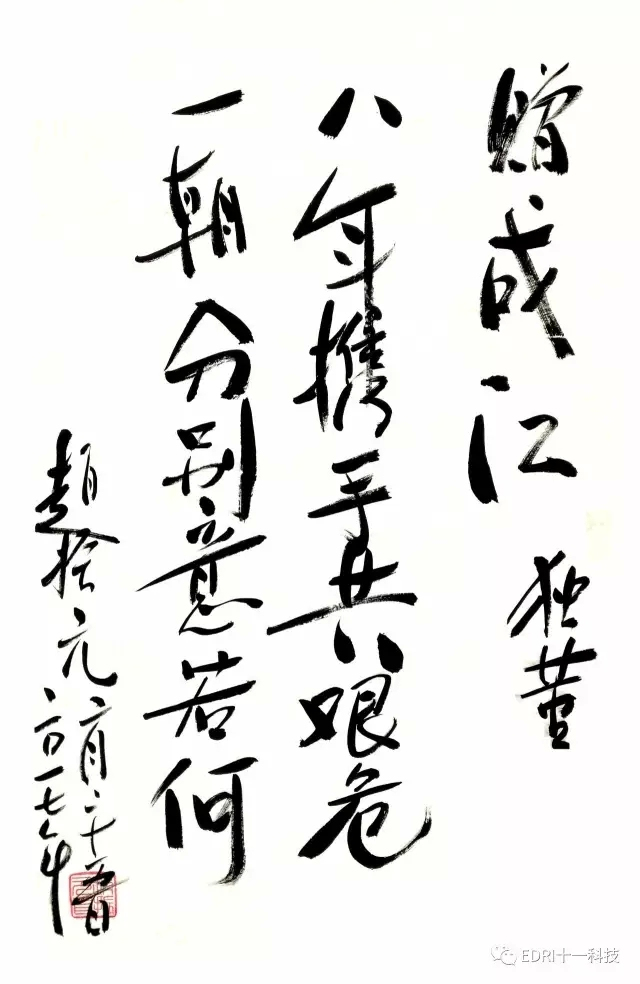 赠成江 独董
八年携手共艰危
一朝分别意若何
趙振元
二〇一七年
月二十五日
EDRI十一科技